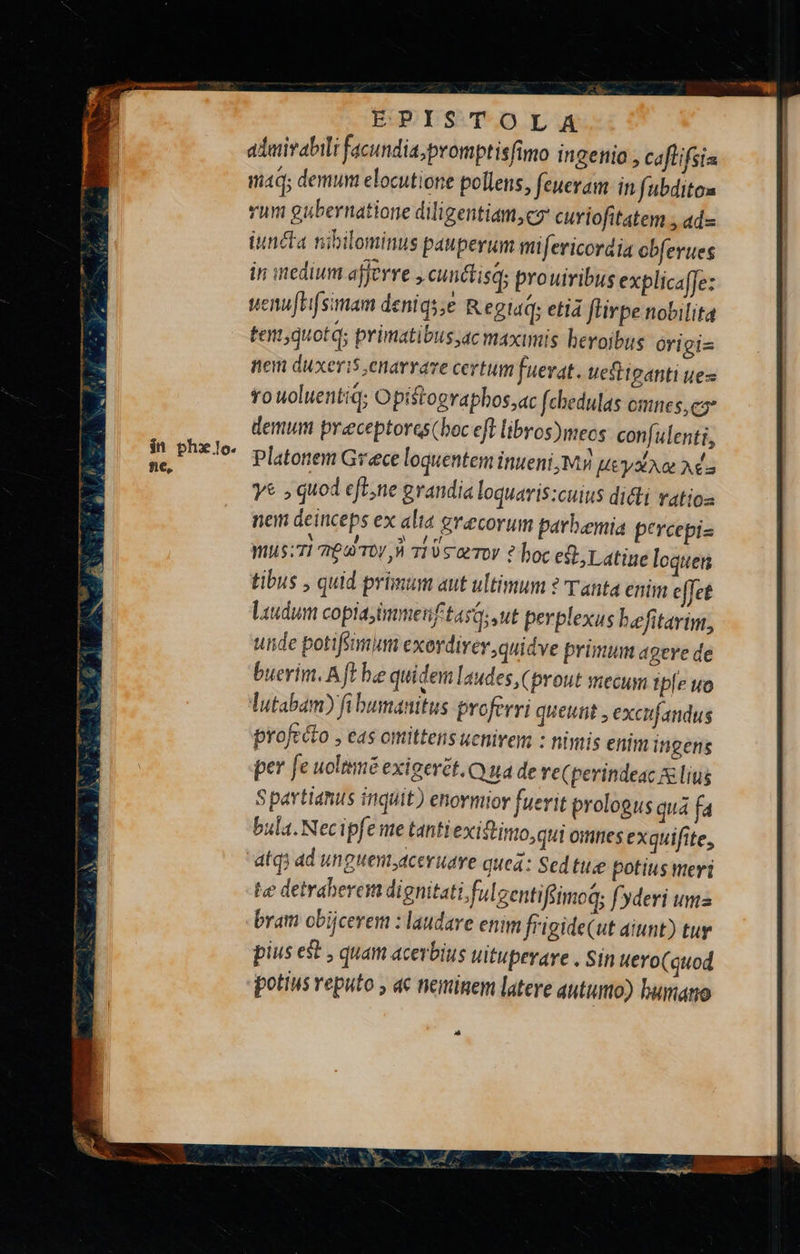 EPISTOLA
admirabili facundia,promptisſimo ingenio , caſtiſsia
maq; demum elocutione pollens, ſeueram in ſubditoꝝ
rum gubernatione diligentiam,& curioſitatem , ad=
iuncta nihilominus pauperum miſericordia obſerues
in medium afferre , cunctisq; pro uiribus explicaſſe:
uenuſtiſsimam deniq;,è Regiaq; etiã ſtirpe nobilita
tem,quotq; primatibus,ac maximis heroibus origi=
nem duxeris,enarrare certum fuerat. ueſtiganti ue=
ro uoluentiq; Opiſtographos,ac ſchedulas omnes,&
demum præceptores(hoc eſt libros)meos conſulenti,
in phælo.
ne,
Platonem Græce loquentem inueni,Μὴ μεγάλα λέ=
γε , quod eſt,ne grandia loquaris:cuius dicti ratio=
nem deinceps ex alia græcorum parhæmia percepi=
mus:Τί πρῶτον,ἢ τί ὕςατον ? hoc eſt,Latine loquen
tibus , quid primum aut ultimum ? Tanta enim eſſet
laudum copia,immenſitasq;,ut perplexus hæſitarim,
unde potiſsimum exordirer,quidve primum agere de
buerim. Aſt hæ quidem laudes,(prout mecum ipſe uo
lutabam) ſi humanitus proferri queunt , excuſandus
profecto , eas omittens uenirem : nimis enim ingens
per ſe uolumẽ exigerẽt. Qua de re(perindeac Ælius
Spartianus inquit) enormior fuerit prologus quã fa
bula. Nec ipſe me tanti exiſtimo,qui omnes exquiſite,
atq; ad unguem,aceruare queã: Sed tuæ potius meri
tæ detraherem dignitati,fulgentiſsimoq; ſyderi um=
bram obijcerem : laudare enim frigide(ut aiunt) tur
pius eſt , quam acerbius uituperare . Sin uero(quod
potius reputo , ac neminem latere autumo) humano